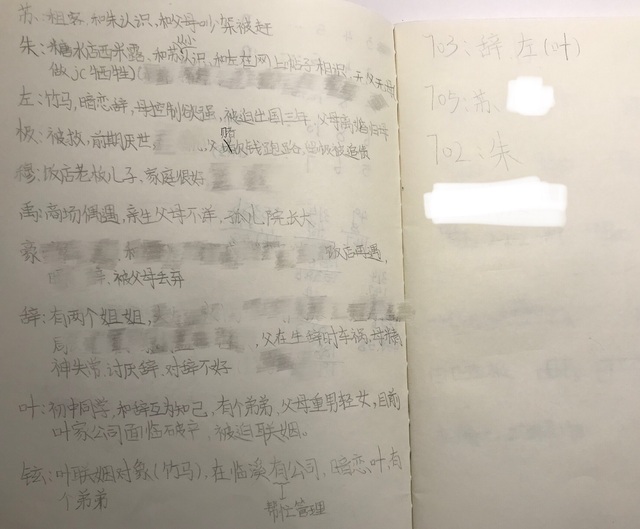 苏:租客,和朱认识,和父母吵架被赶
朱:糖水店西米露,和苏认识,和左在网上帖子相识,
做jc牺牲)(
左:竹马,暗恋辞,母控制欲强,被迫出国三年,父母离婚
极:被救,前期厌世 ,父 欠钱跑路,
穆:饭店老板儿子,家庭很好
禹:商场偶遇,亲生父母不详,孤儿院长大
饭店再遇,
被父母丢弃
辞:有两个姐姐,
,父在生辞时车祸,母精
神失常,讨厌辞,对辞不好
叶:初中同学,和辞互为知己,有个弟弟,父母重男轻女,目前
叶家公司面临破产,被迫联姻。
铉:叶联姻对象(竹马),在临溪有公司,暗恋叶,有
个弟弟
帮忙管理
703:辞 左(叶)
705:苏
702:朱